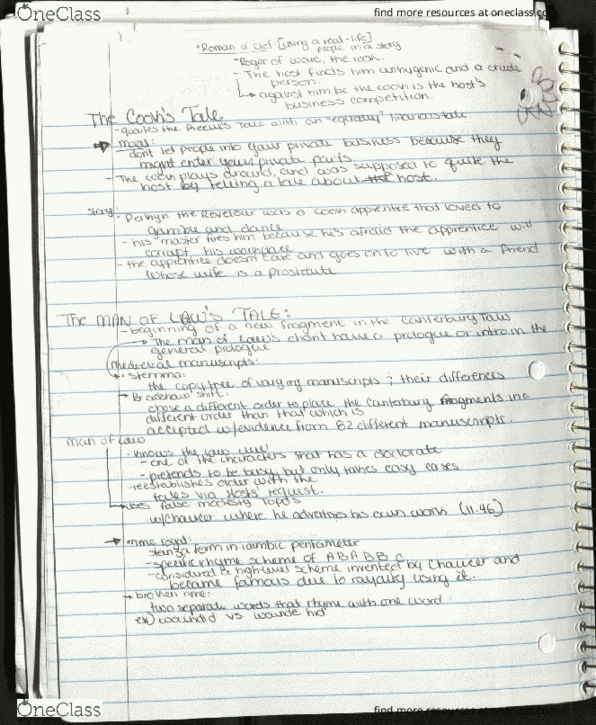 OneClass
find more resources at oneclass.co
*Roman a' Clef: [using a real-life]
people in a story
-Roger of ware, the cook.
- The host finds him unhygenic and a crude
person.
↳ against him bc the cook is the host's
business competition.
The Cook's Tale
-quites the Reeve's Tale with an "equally" hilarious tale
→ moral:
-don't let people into your private business because they
might enter your private parts
- The cook plays around, and was supposed to quite the
host by telling a tale about host.
story: • Perkyn the Revelour was a cook apprentice that loved to
gamble and dance
- his master fires him because he's afraid the apprentice will
corrupt his workplace
- the apprentice doesn't care and goes on to live with a friend
whose wife is a prostitute
THE MAN OF LAW'S TALE:
-beginning of a new fragment in the Canterbury Tales
→ The man of Law's don't have a prologue or intro in the
general prologue
Medieval manuscripts:
→ Stemma:
the copy tree of varying manuscripts & their differences
→ Bradshaw shift:
chose a different order to place the Canterbury fragments in a
different order than that which is
accepted w/evidence from 82 different manuscripts.
man of Law
• knows the law
- one of the characters that has a doctorate
- pretends to be busy, but only takes easy cases
-reestablishes order with the
tales via Hosts' request.
→ uses false modesty topos
w/chaucer where he advertises his own works (11.46)
→ • rime royal:
stanza form in iambic pentameter
-specific rhyme scheme of ABABBC
-considered a high-level scheme invented by Chaucer and
became famous due to royalty using it.
→ broken rime:
two separate words that rhyme with one word
ex) wounded vs. wounde hid
OneClass
find more resources at oneclass.com